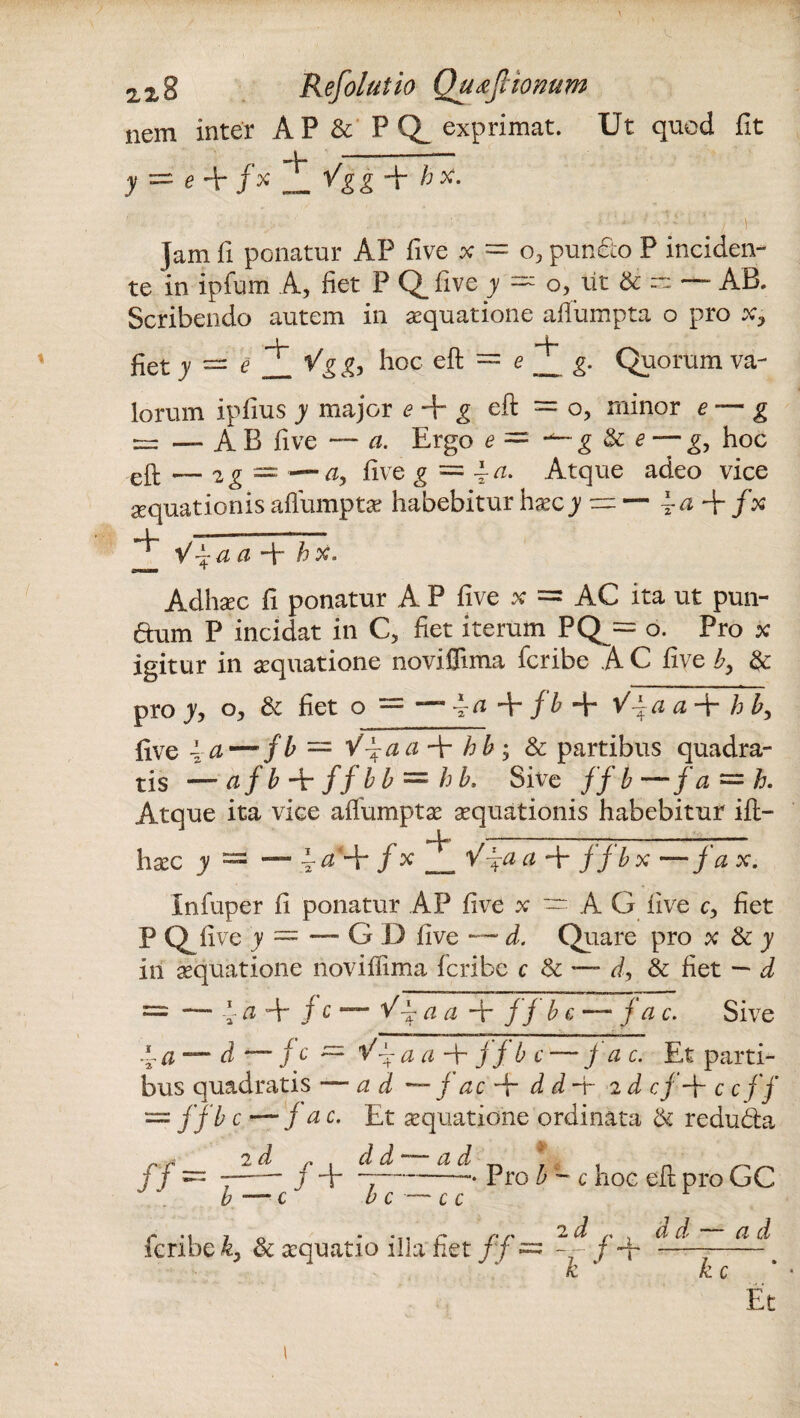 228 Reſolutio Quæſtionum
nem inter A P & P Q exprimat. Ut quod ſit
y = e + fx ± √gg + hx.
Jam ſi ponatur AP ſive x = 0, puncto P inciden-
te in ipſum A, fiet P Q ſive y = 0, ut & = — AB.
Scribendo autem in æquatione aſſumpta 0 pro x,
fiet y = e ± √gg, hoc eſt = e ± g. Quorum va-
lorum ipſius y major e + g eſt = 0, minor e — g
= — A B ſive — a. Ergo e = — g & e — g, hoc
eſt — 2g = — a, ſive g = ½a. Atque adeo vice
æquationis aſſumptæ habebitur hæc y = — ½a + fx
± √¼aa + hx.
Adhæc ſi ponatur A P ſive x = AC ita ut pun-
ctum P incidat in C, fiet iterum PQ = 0. Pro x
igitur in æquatione noviſſima ſcribe A C ſive b, &
pro y, 0, & fiet 0 = — ½a + fb + √¼aa + hb,
ſive ½a — fb = √¼aa + hb; & partibus quadra-
tis — afb + ffbb = hb. Sive ffb — fa = h.
Atque ita vice aſſumptæ æquationis habebitur iſt-
hæc y = — ½a + fx ± √¼aa + ffbx — fax.
Inſuper ſi ponatur AP ſive x = A G ſive c, fiet
P Q ſive y = — G D ſive — d. Quare pro x & y
in æquatione noviſſima ſcribe c & — d, & fiet — d
= — ½a + fc — √¼aa + ffbc — fac. Sive
½a — d — fc = √¼aa + ffbc — fac. Et parti-
bus quadratis — ad — fac + dd + 2dcf + ccff
= ffbc — fac. Et æquatione ordinata & reducta
ff = 2d/(b — c) f + (dd — ad)/(bc — cc). Pro b - c hoc eſt pro GC
ſcribe k, & æquatio illa fiet ff = 2d/k f + (dd — ad)/kc.
Et